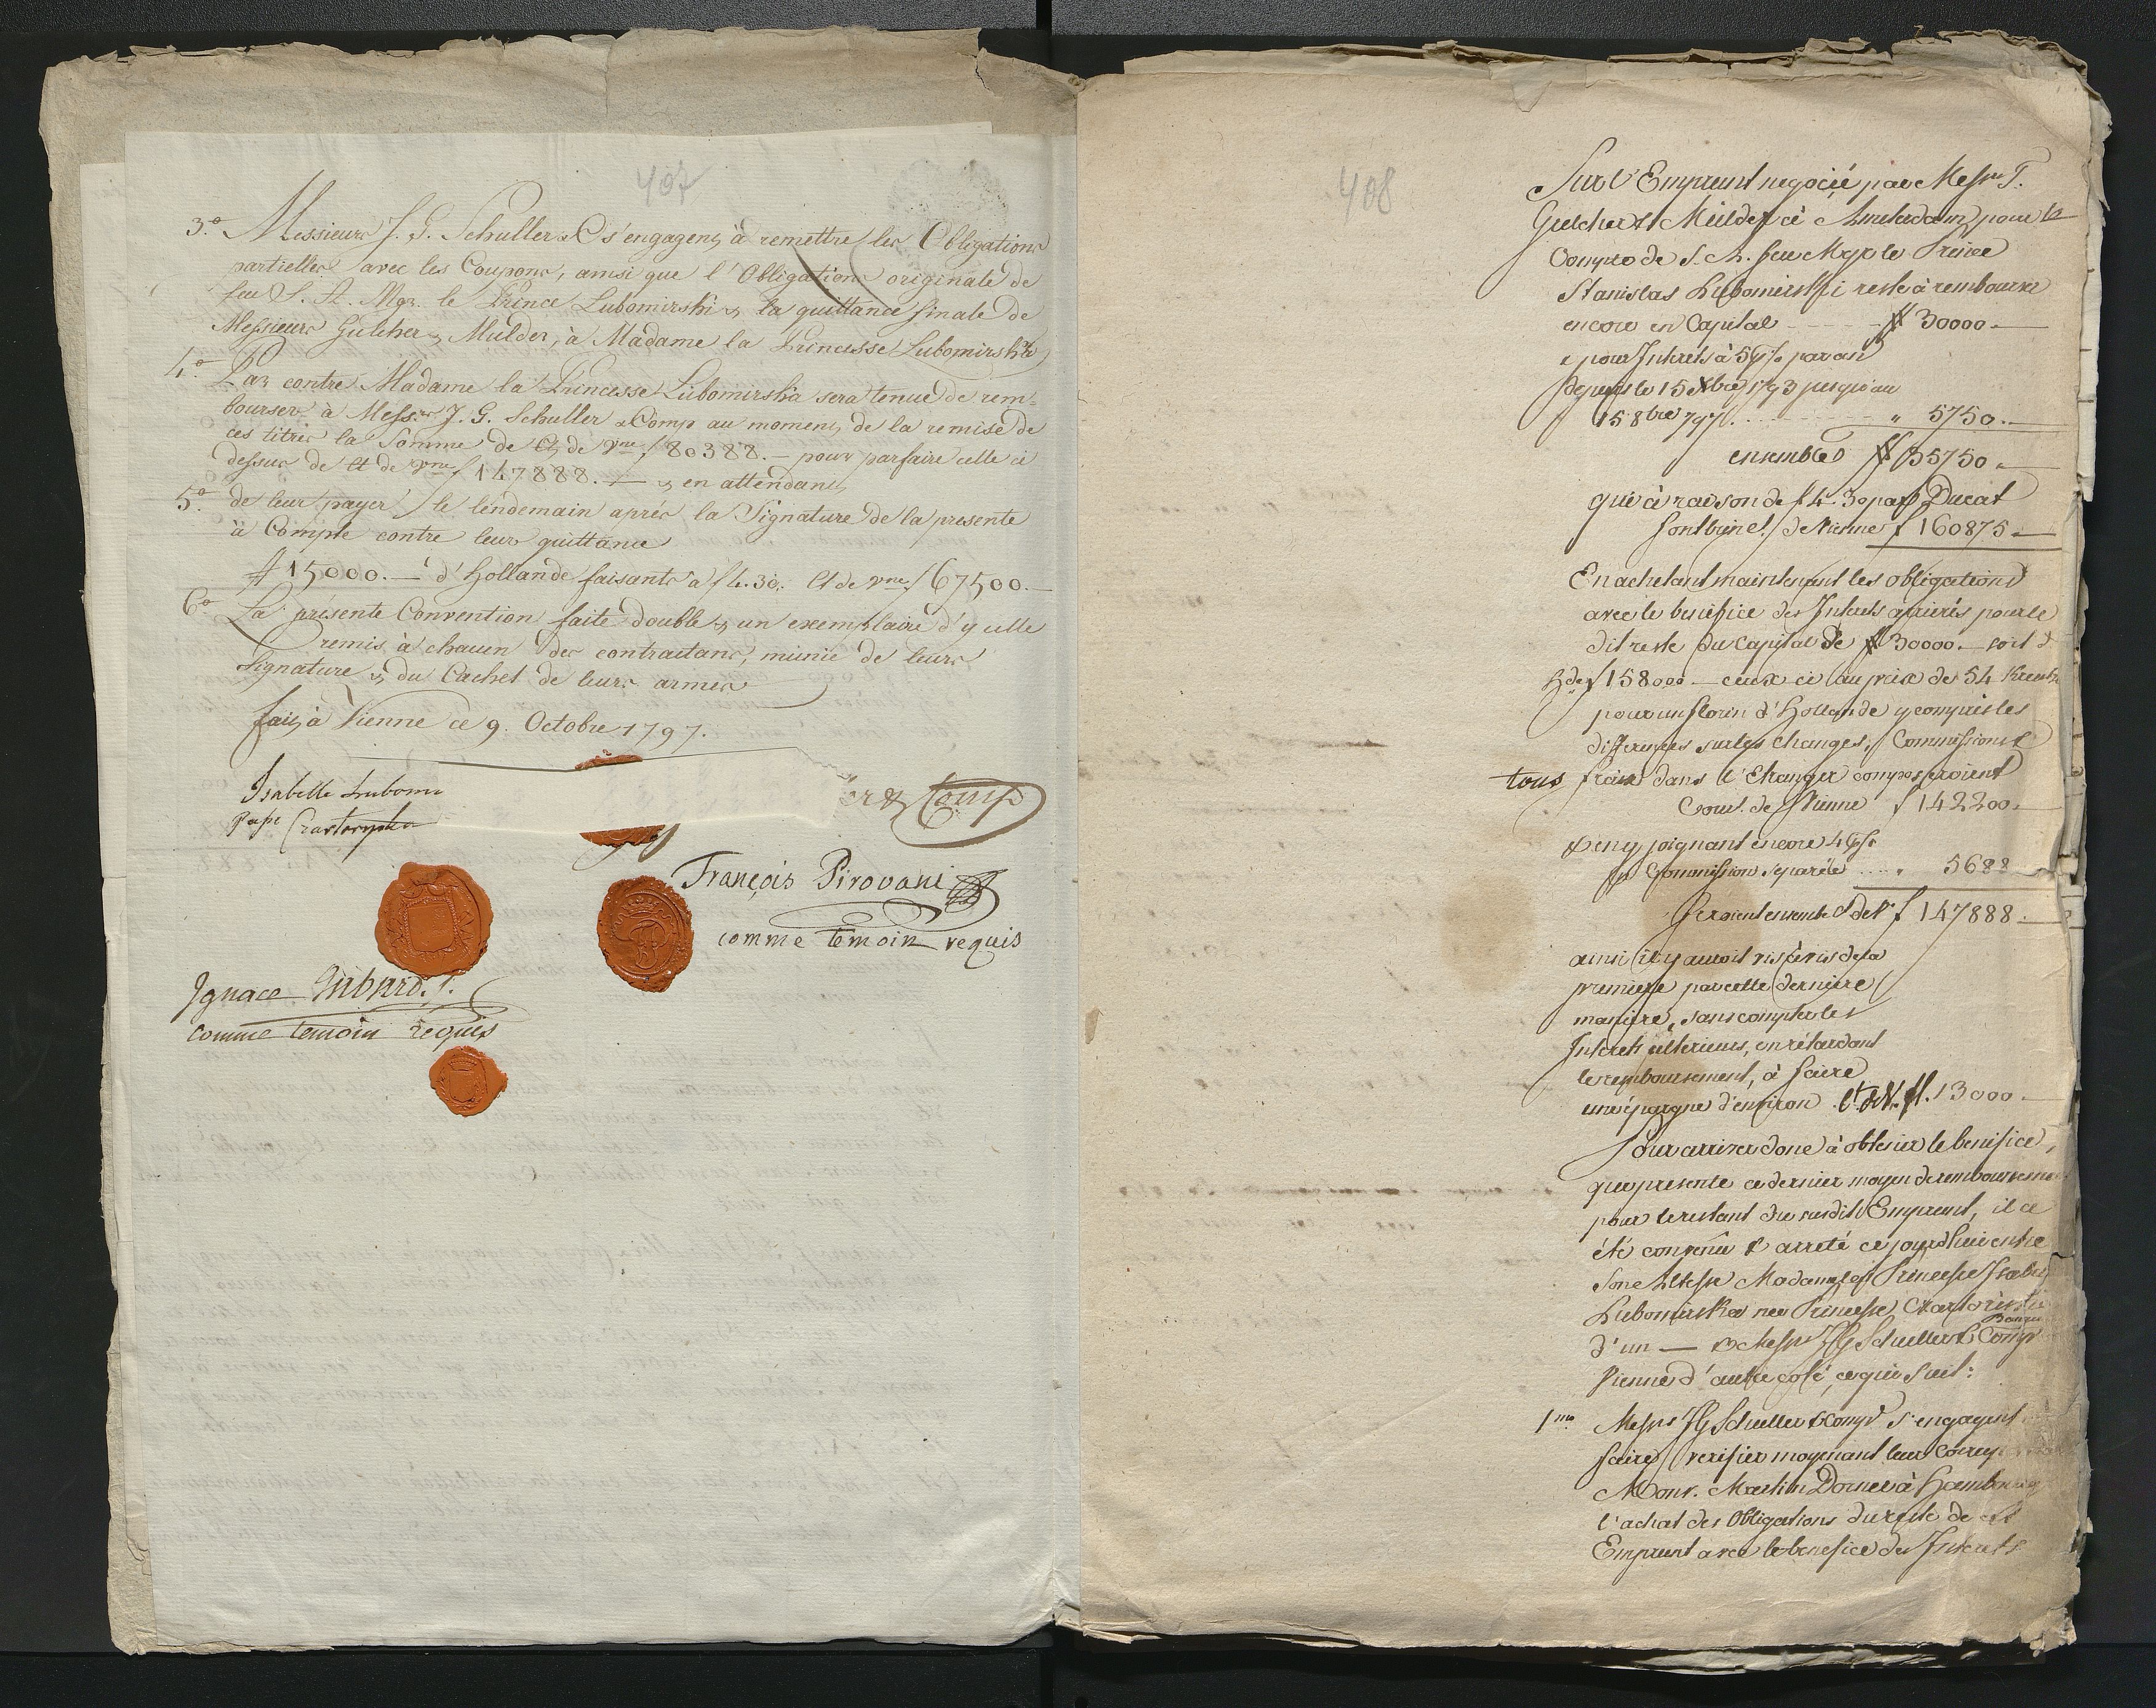 407
3.o Messieurs J. G. Schuller & C s'engagent à remettre les Obligations
partielles avec les Coupons, ainsi que l'Obligation originale de
feu S. A. Mgr. le Prince Lubomirski & la quittance finale de
Messieurs Gülcher & Mulder, à Madame la Princesse Lubomirska
4.o Par contre Madame la Princesse Lubomirska sera tenue de rem-
bourser à Mess.rs J. G. Schuller & Comp au moment de la remise de
ces titres la Somme de Ct de Vne f 80388.— pour parfaire celle ci
dessus de Ct de Vne f 147888.— & en attendant
5.o de leur payer le lendemain après la Signature de la presente
à Compte contre leur quittance
# 15000.— d'Hollande faisants à f 4.30. Ct de Vne f 67500.—
6.o La présente Convention faite double & un exemplaire d'ycelle
remis à chacun des contractans, munie de leurs
Signature & du Cachet de leurs armes
fait à Vienne ce 9. Octobre 1797.
Isabelle Lubomi
Czartoryska
er & Comp
François Pirovani
comme temoin requis
Ignace
comme temoin requis
408
Sur l'Emprunt negocié par Messrs T.
Gulcher & Mülder à Amsterdam pour le
Compte de S. A. feu Mgr le Prince
Stanislas Lubomirski reste à rembourser
encore en Capital - - - - # 30000.—
& pour Interets à 5 % par an
depuis le 15 Xbre 1793 jusqu'au
15 8bre 797 . - - - - " 5750.—
ensemble # 35750.—
qui à raison de f 4-30 par Ducat
font de Vienne f 160875.—
En achetant maintenant les obligations
avec le benefice des Interets arrierés pour le
dit reste du Capital de # 30000.— soit d'
Hde f 158000 — ceux ci au prix de 54 Kreutz
pour un florin d'Hollande y compris les
differences sur les changes, Commissions &
tous fraix dans l'Etranger composeroient
Cour.t de Vienne f 142200.—
& en y joignant encore 4 %
Commission separée .... " 5688
feroient ensemble f 147888.—
ainsi il y auroit vis à vis de la
premiere par cette derniere
maniere, sans compter les
Interets ulterieurs, en rétardant
le remboursement, à faire
une épargne d'environ Ct. de V. fl. 13000.—
Pour arriver donc à obtenir le benefice,
que presente ce dernier moyen de remboursemen
pour le restant du susdit Emprunt, il a
été convenu & arreté ce jourd'hui entre
Son Altesse Madame la Princesse Isabel
Lubomirska née Princesse Czartoriska
d'un — & Messrs JG Schuller & Comp
Vienne d'autre coté, ce qui suit:
1mo Messrs JG Schuller & Comp s'engagent
faire verifier moyenant leur
Monr. Martin Dorner à Hambourg
l'achat des Obligations du reste de cet
Emprunt avec le benefice des Interets